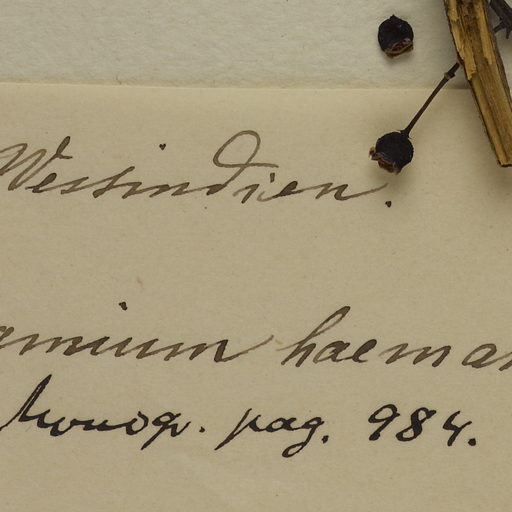 Westindien.
amium haeman
Monogr. pag. 984.